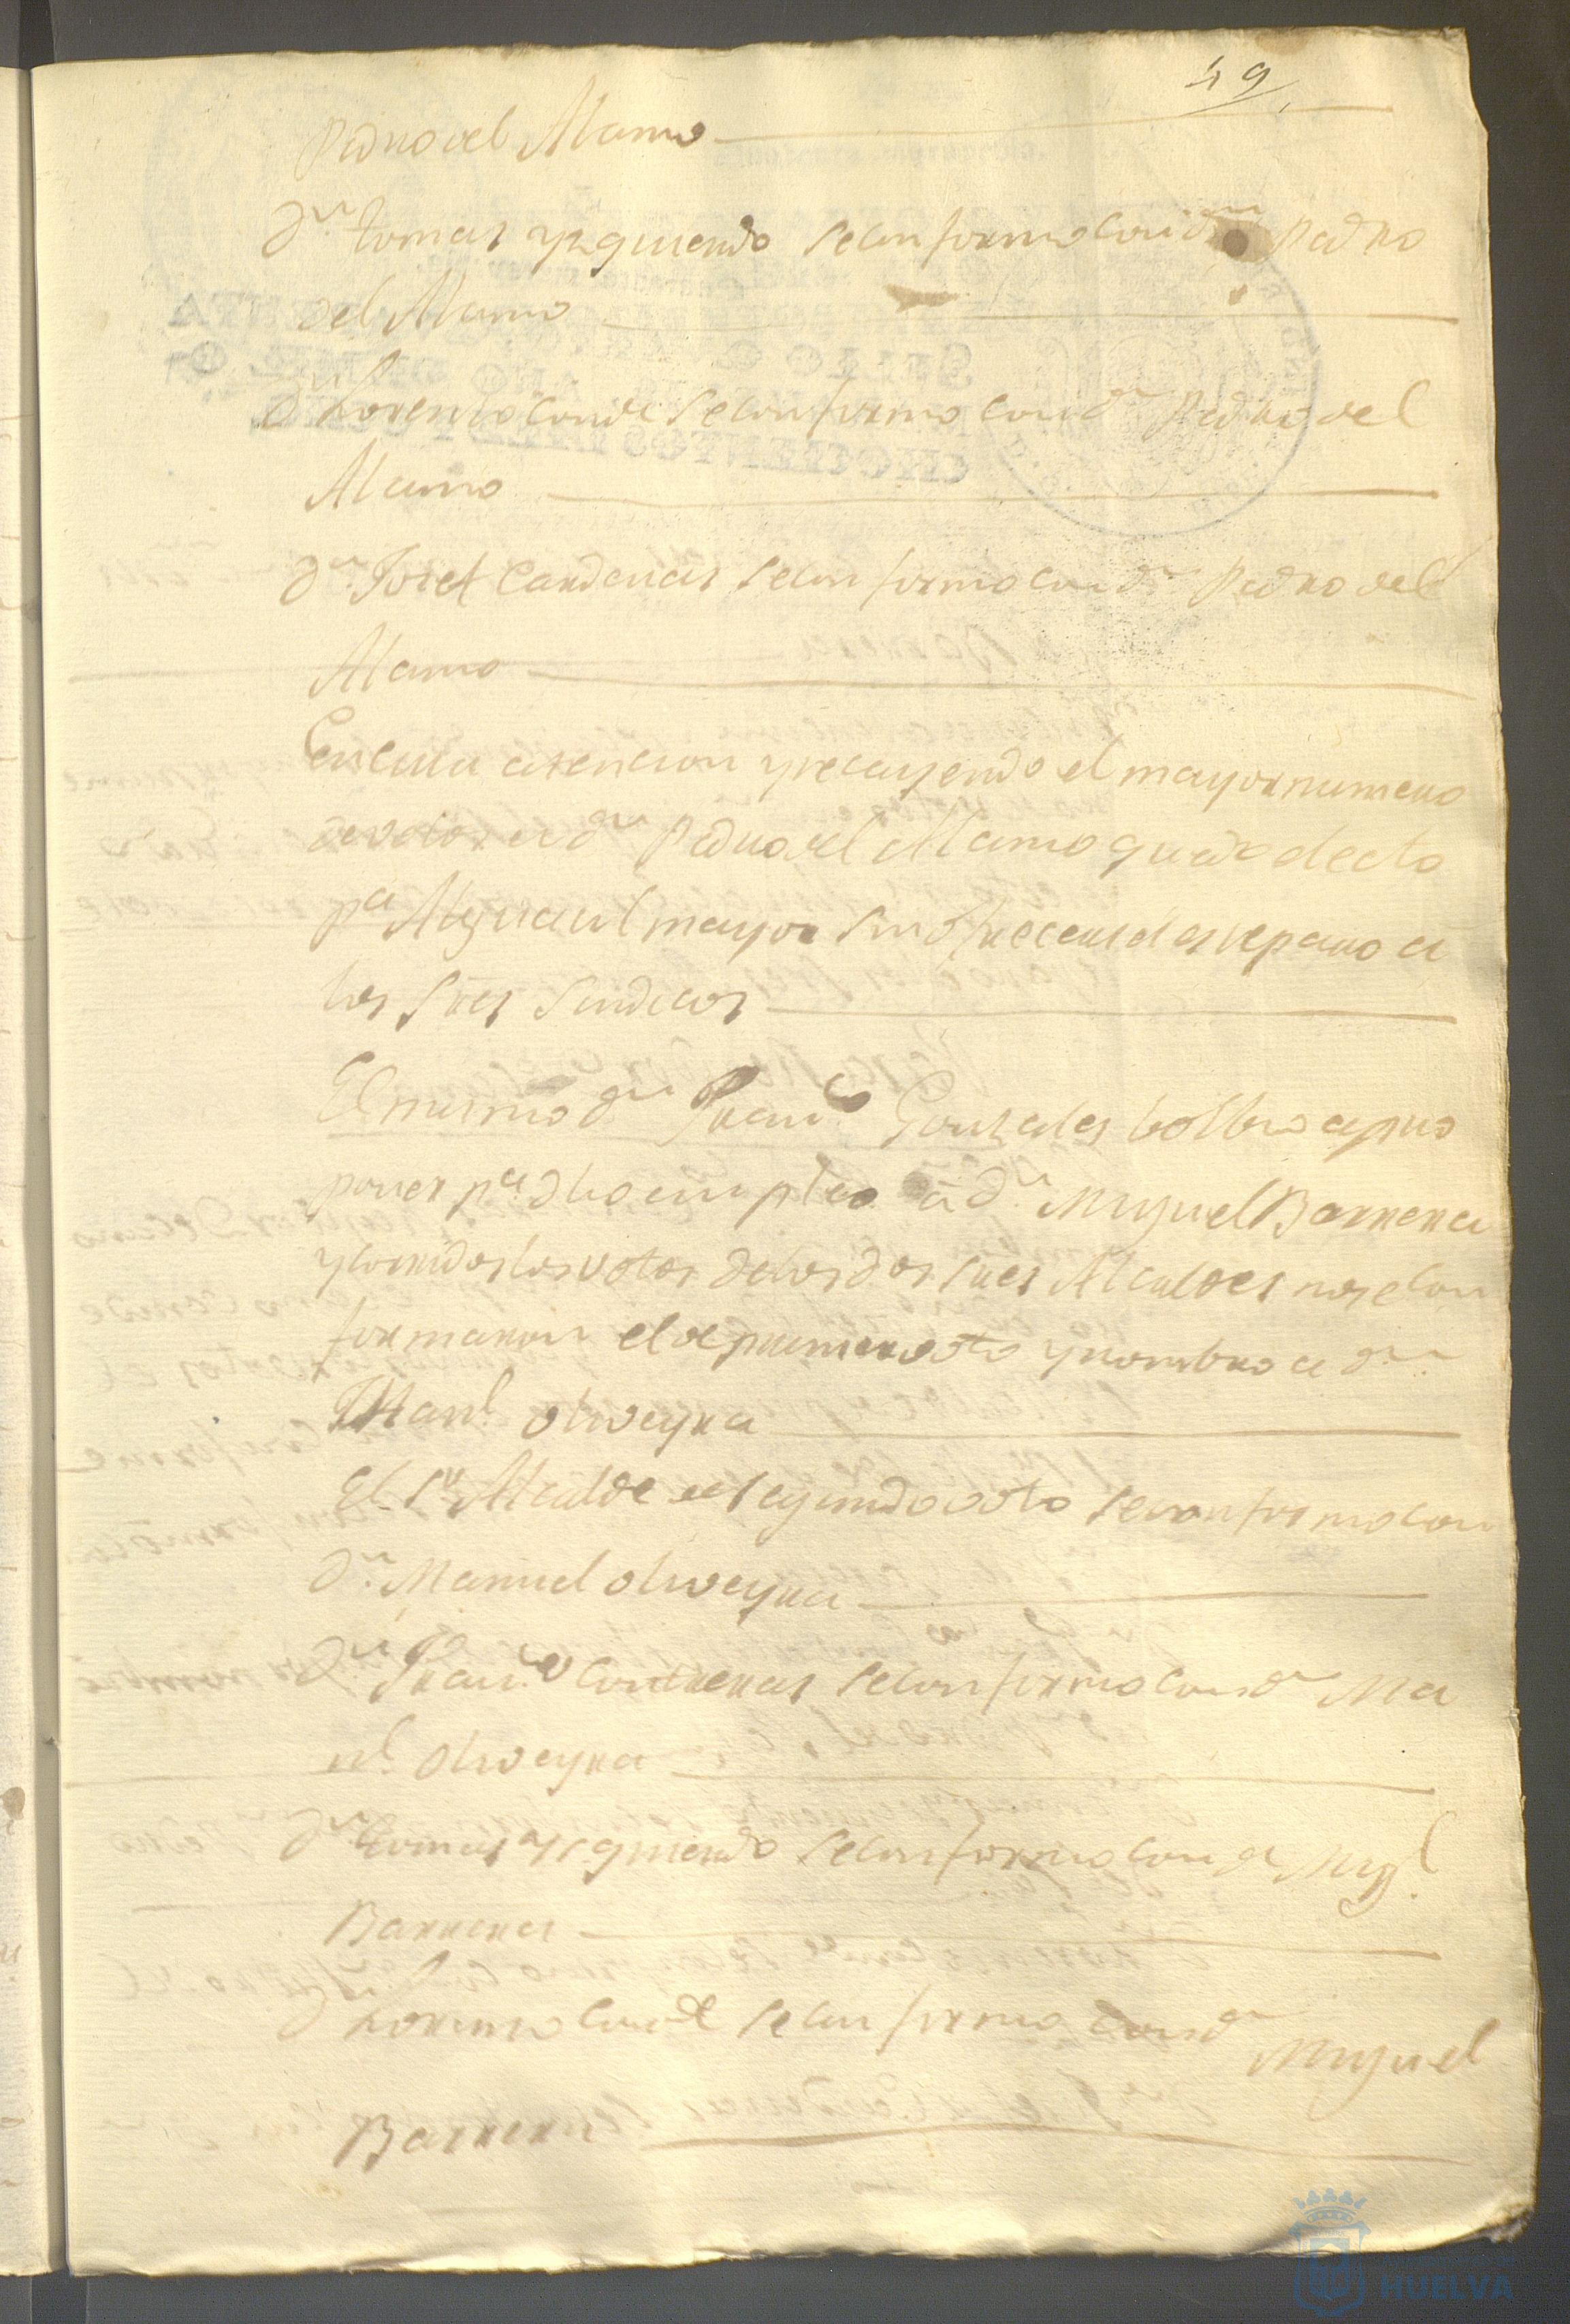 49
Pedro del Alamo
Dn. tomas yzquierdo se conformo con dn. Pedro
del Alamo
Dn. Lorenso Conde se conformo con dn. Pedro del
Alamo
Dn. Josef Cardenas se conformo con dn. Pedro del
Alamo
En cuia atencion y recayendo el mayor numero
de votos en dn. Pedro del Alamo quedo electo
pa. Alguacil mayor sin ofrecerseles reparo a
los Sres Sindicos
El mismo dn. Franco. Gonzales bolbio a pro
poner pa. dho empleo a dn. Miguel Barrera
y corridos los votos de los dos sres Alcaldes no se con
formaron el de primer voto y nombro a dn.
Manl. oliveyra
El Sr. Alcalde de segundo voto se conformo con
dn. Manuel oliveyra
Dn. Franco. Contreras se conformo con dn. Ma
nl. oliveyra
Dn. tomas yzquierdo se conformo con dn. Migl.
Barrera
Dn. Lorenso Conde se conformo con dn. Miguel
Barrera
HUELVA